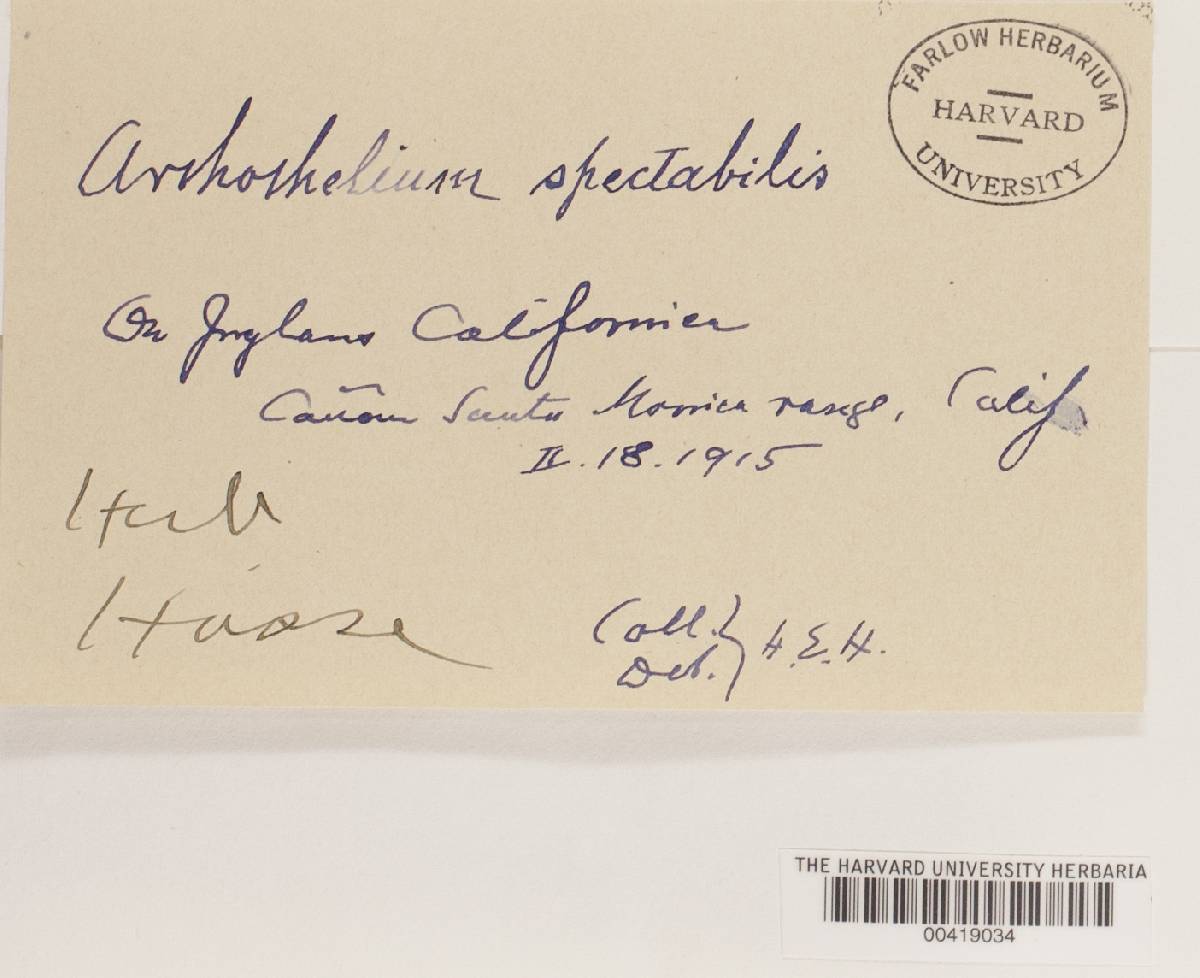 FARLOW HERBARIUM
HARVARD
UNIVERSITY
Arthothelium spectabilis
On Juglans Californica
Cañon Santa Monica range, Calif
II. 18. 1915
Herb
Hasse
Coll. } H. E. H.
Det.
THE HARVARD UNIVERSITY HERBARIA
00419034